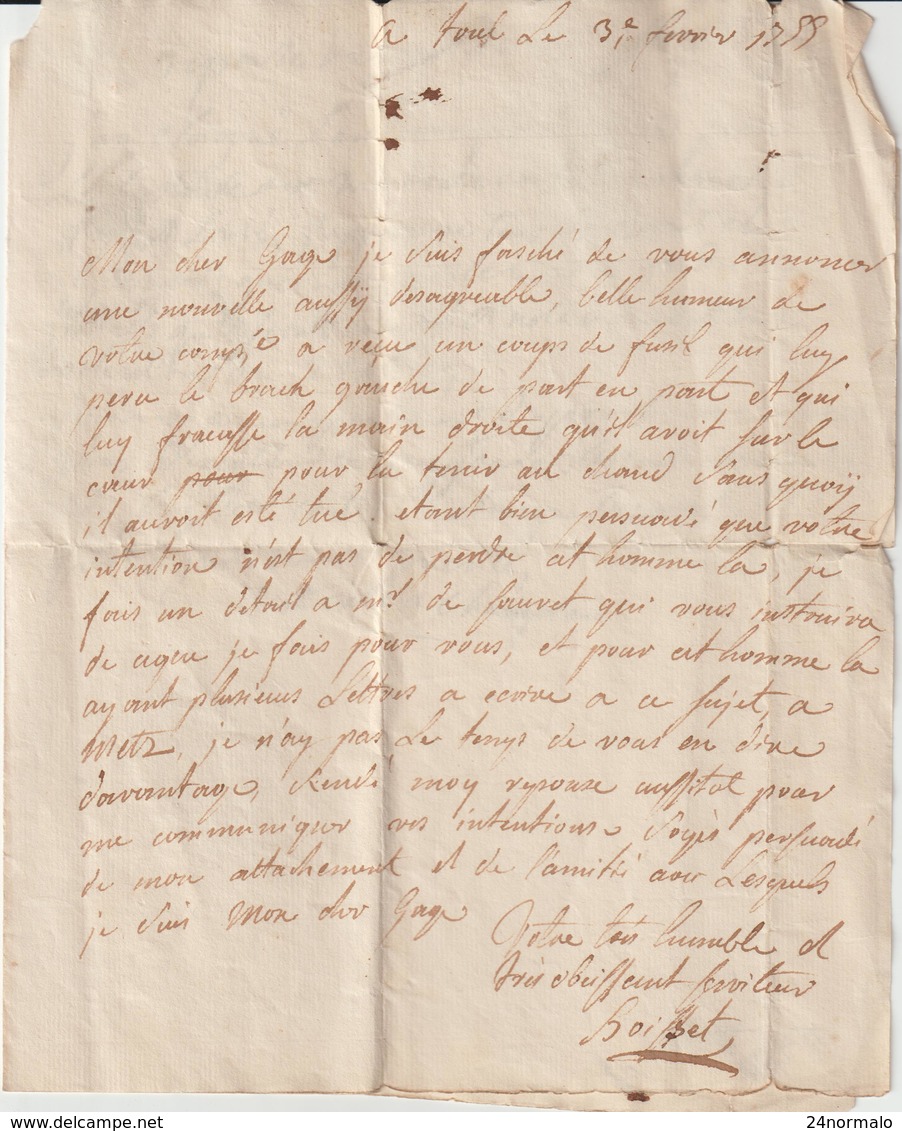 a toul Le 3.e fevrier 1755
Mon cher Gage je suis fasché de vous annoncer
une nouvelle aussÿ desagreable, belle humeur de
votre comp.e a reçu un coups de fusil qui luy
perce le brach gauche de part en part et qui
luy fracasse la main droite qu'il avoit sur le
cœur pour pour la tenir au chaud sans quoÿ
il auroit esté tué etant bien persuadé que votre
intention n'est pas de perdre cet homme la, je
fais un detail a mr. de sauvet qui vous instruira
de ceque je fais pour vous, et pour cet homme la
ayant plusieurs Lettres a ecrire a ce sujet, a
Metz, je n'ay pas Le temps de vous en dire
davantage, rendé moy reponse aussitot pour
me communiquer vos intentions soyés persuadé
de mon attachement et de l'amitié avec Lesquels
je suis Mon cher Gage
Votre tres humble et
très obeissant serviteur
hoisset
www.delcampe.net
24normalo